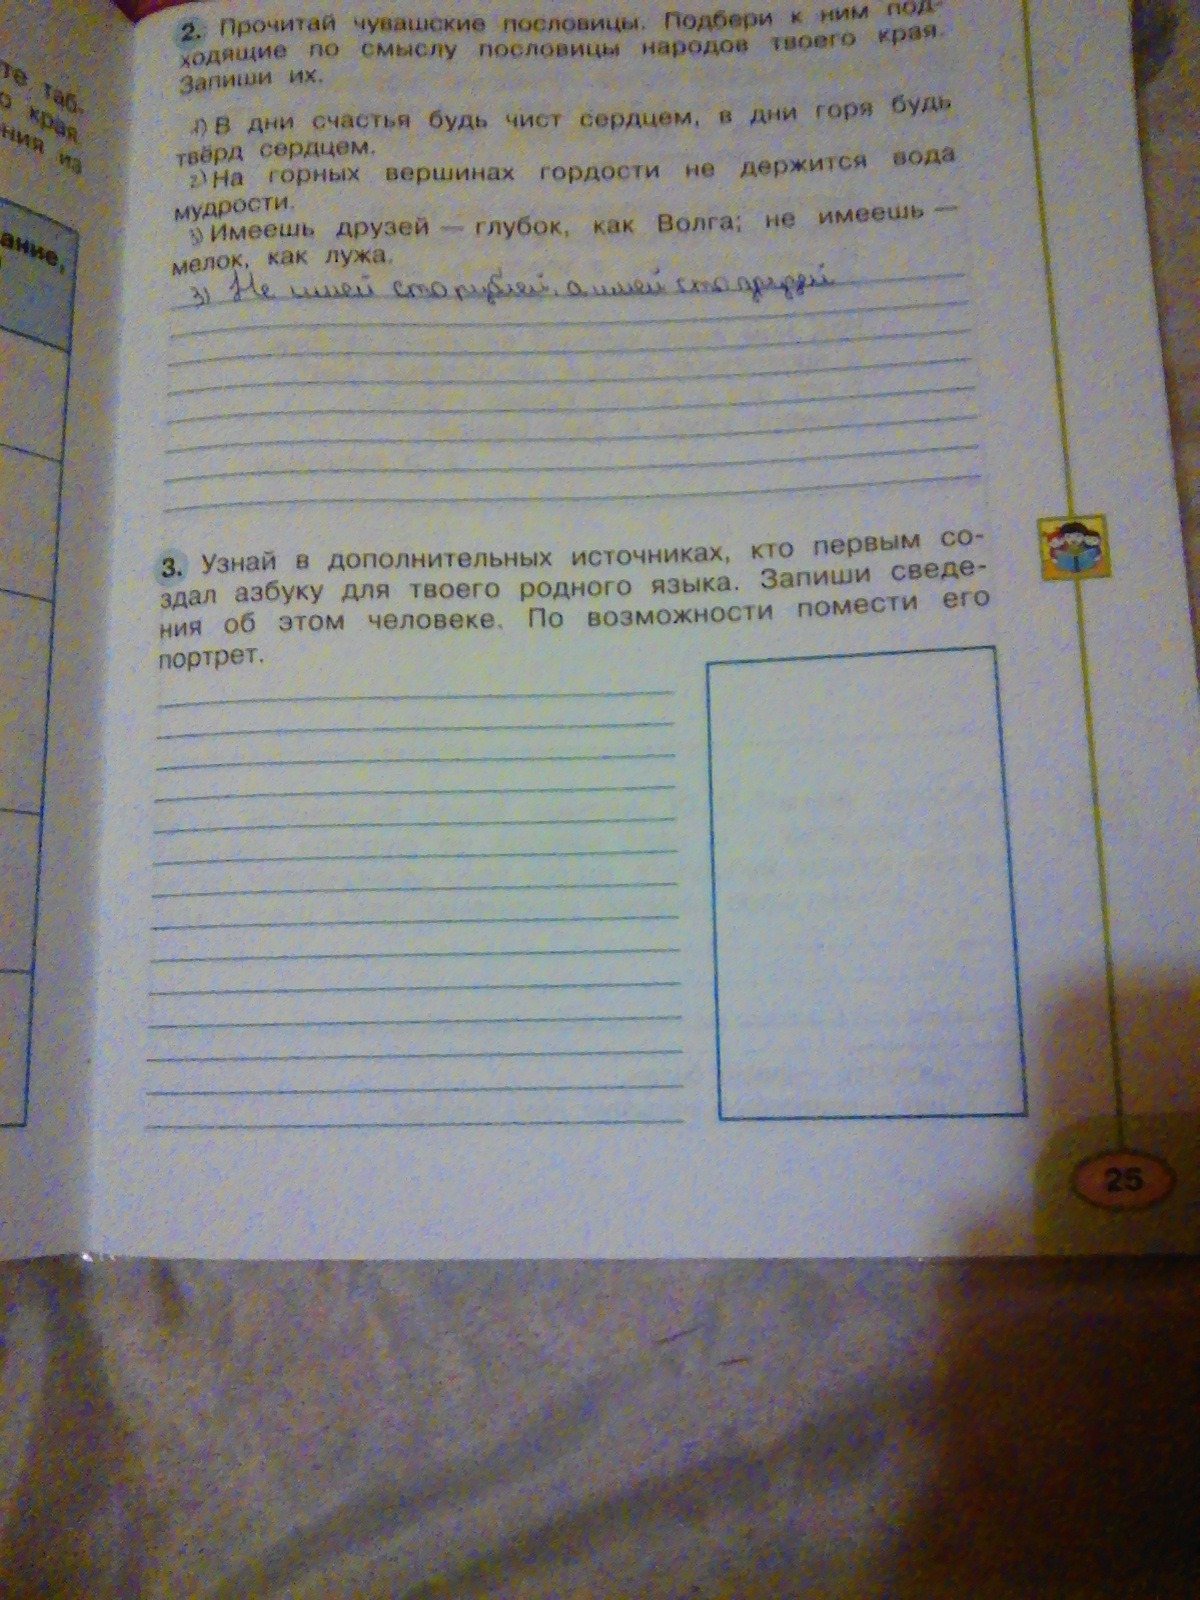 2. Прочитай чувашские пословицы. Подбери к ним под-
ходящие по смыслу пословицы народов твоего края.
Запиши их.
1) В дни счастья будь чист сердцем, в дни горя будь
твёрд сердцем.
2) На горных вершинах гордости не держится вода
мудрости.
3) Имеешь друзей — глубок, как Волга; не имеешь —
мелок, как лужа.
3) Не имей сто рублей, а имей сто друзей
3. Узнай в дополнительных источниках, кто первым со-
здал азбуку для твоего родного языка. Запиши сведе-
ния об этом человеке. По возможности помести его
портрет.
25
те таб-
о края.
ния из
ание,